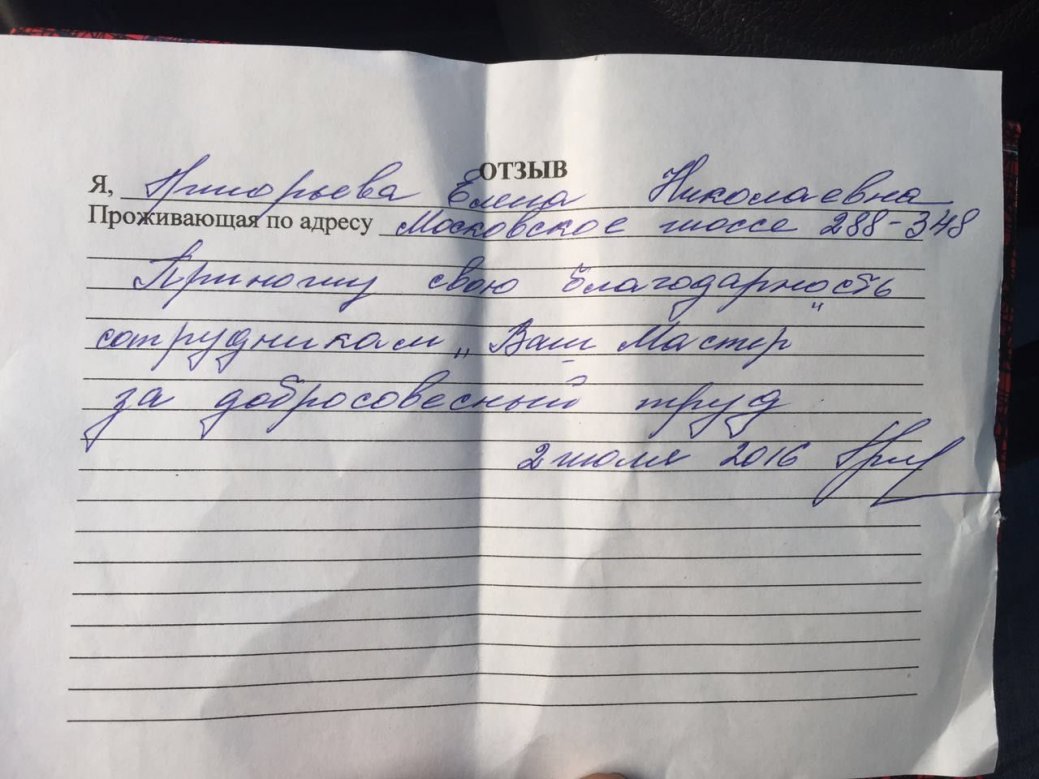 ОТЗЫВ
Я, Григорьева Елена Николаевна
Проживающая по адресу Московское шоссе 288-348
Приношу свою благодарность
сотрудникам „Ваш Мастер"
за добросовесный труд
2 июля 2016